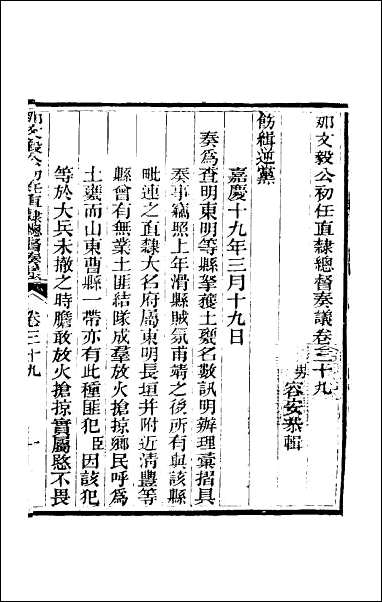 那文毅公初任直隸總督奏議卷三十九
男
容安恭輯
飭緝逆黨
嘉慶十九年三月十九日
奏爲查明東明等縣拏獲土夔名數訊明辦理彙摺具
奏事竊照上年滑縣賊氛甫靖之後所有與該縣
毗連之直隸大名府屬東明長垣并附近清豐等
縣會有無業土匪結隊成羣放火搶掠鄉民呼爲
土夔而山東曹縣一帶亦有此種匪犯臣因該犯
等於大兵未撤之時膽敢放火搶掠實屬愍不畏
那文毅公初任直隸總督奏議
卷三十九
一